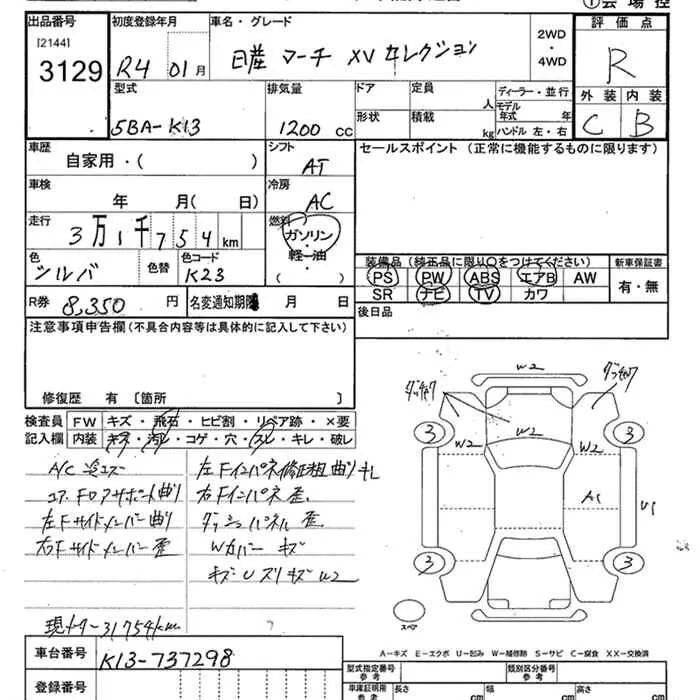 出品番号 初度登録年月 車名・グレード
[2144]
3129
R4 01月
日産 マーチ XV セレクション
2WD
・
4WD
評価点
R
型式 排気量 ドア 定員 人 ディーラー・並行
外装 内装
5BA-K13
1200 CC
形状 積載 kg
モデル年式 年
ハンドル 左・右
C B
車歴 シフト セールスポイント (正常に機能するものに限ります)
自家用・( )
AT
車検 冷房
年 月( 日)
AC
走行 燃料
3万1千754km
ガソリン
・
軽油
・
( )
色 色替 色コード
シルバ K23
装備品 (純正品に限り○をつけてください) 新車保証書
PS PW ABS エアB AW
SR ナビ TV カワ
有・無
R券 8,350 円 名変通知期限 月 日
後日品
注意事項申告欄 (不具合内容等は具体的に記入して下さい)
修復歴 有 〔箇所 〕
検査員記入欄
FW キズ・飛石・ヒビ割・リペア跡・×要
内装 キズ・汚レ・コゲ・穴・スレ・キレ・破レ
左Fインパネ修正粗曲りキレ
右Fインパネ歪
左Fサイドメンバー曲り
ダッシュパネル歪
右Fサイドメンバー歪
Wカバー キズ
現メーター31754km
W2
W2
W2
W2
A1
U1
3
3
3
3
スペア
A-キズ E-エクボ U-凹み W-補修跡 S-サビ C-腐食 XX-交換済
車台番号 K13-737298
登録番号
型式指定番号 参考
類別区分番号 参考
車庫証明用 参考 長さ 幅 高さ